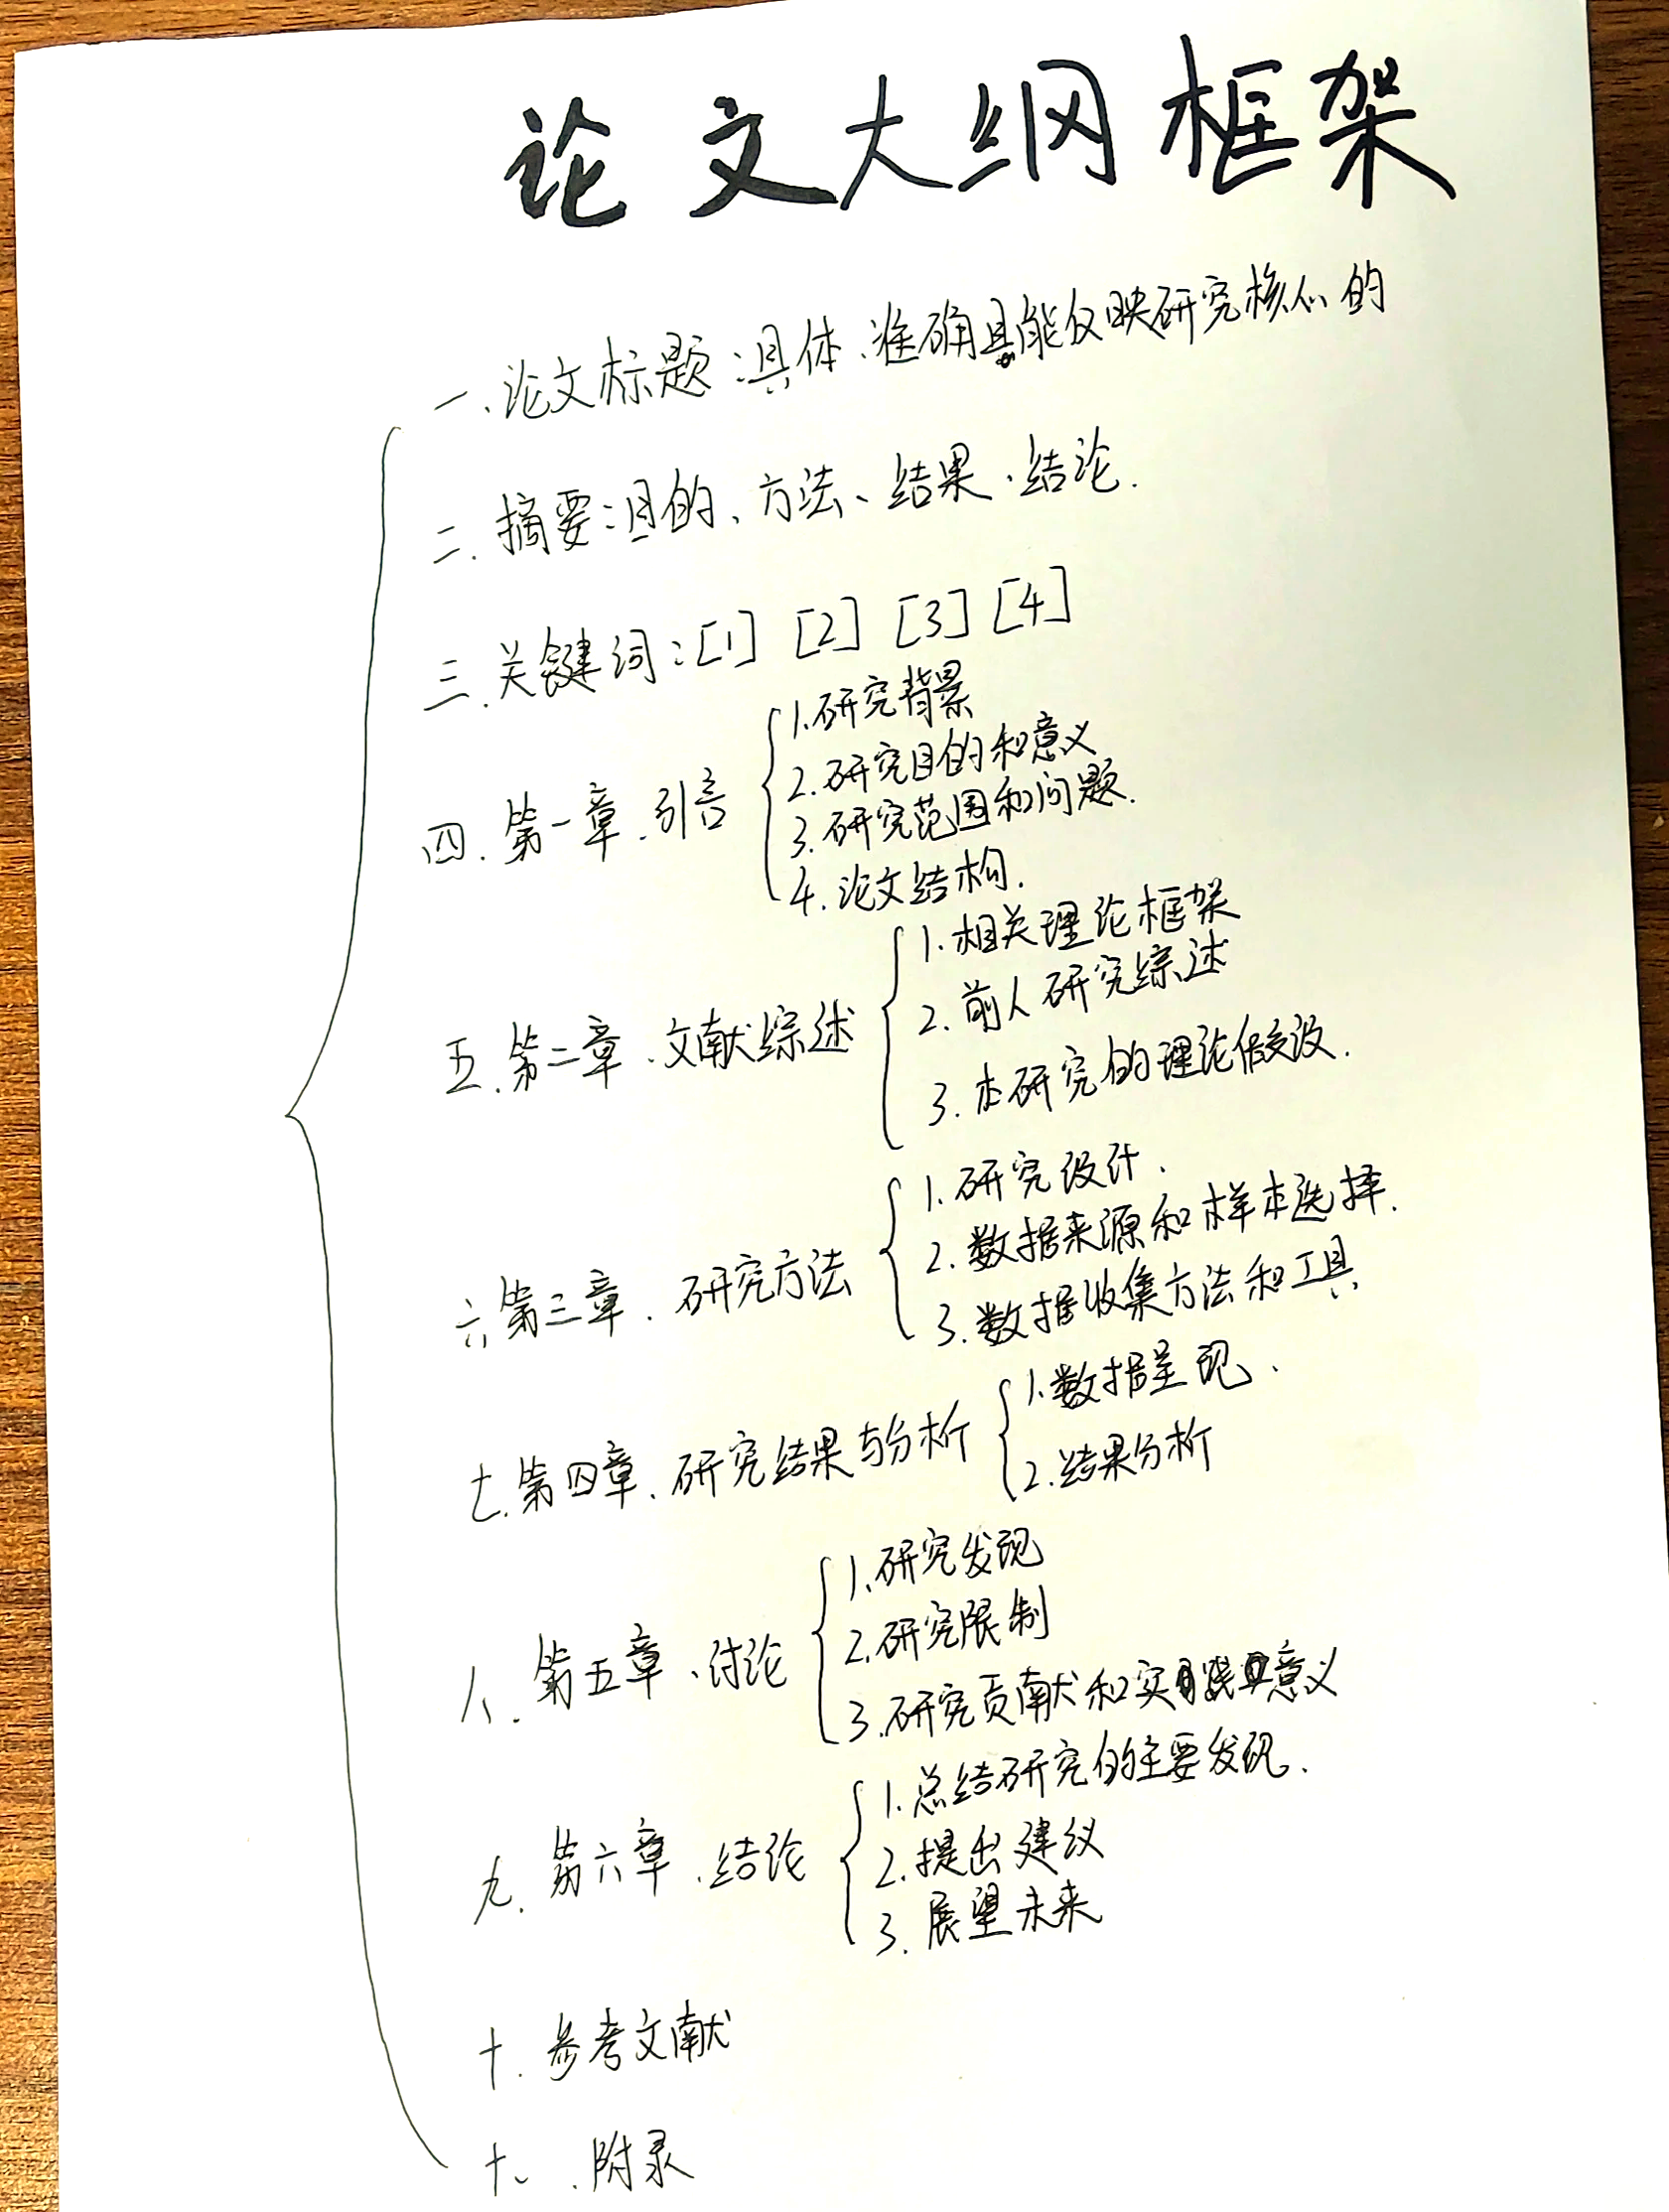 论文大纲框架
一、论文标题：具体、准确且能反映研究核心的
二、摘要：目的、方法、结果、结论.
三.关键词：[1] [2] [3] [4]
四.第一章.引言
1.研究背景
2.研究目的和意义
3.研究范围和问题.
4.论文结构.
五.第二章.文献综述
1.相关理论框架
2.前人研究综述
3.本研究的理论假设.
六第三章.研究方法
1.研究设计.
2.数据来源和样本选择.
3.数据收集方法和工具
七.第四章.研究结果与分析
1.数据呈现.
2.结果分析
八.第五章、讨论
1.研究发现
2.研究限制
3.研究贡献和实践意义
九.第六章.结论
1.总结研究的主要发现.
2.提出建议
3.展望未来
十.参考文献
十一.附录